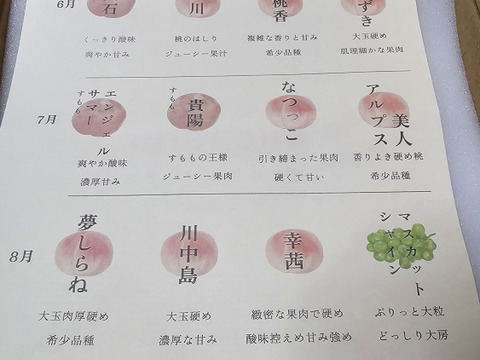 6月
石
くっきり酸味
爽やか甘み
川
桃のはしり
ジューシー果汁
桃香
複雑な香りと甘み
希少品種
ずき
大玉硬め
肌理細かな果肉
7月
エンジェル
サマー
すもも
爽やか酸味
濃厚甘み
貴陽
すもも
すももの王様
ジューシー果肉
なつっこ
引き締まった果肉
硬くて甘い
アルプス
美人
香りよき硬め桃
希少品種
8月
夢しらね
大玉肉厚硬め
希少品種
川中島
大玉硬め
濃厚な甘み
幸茜
緻密な果肉で硬め
酸味控えめ甘み強め
シャイン
マスカット
ぷりっと大粒
どっしり大房